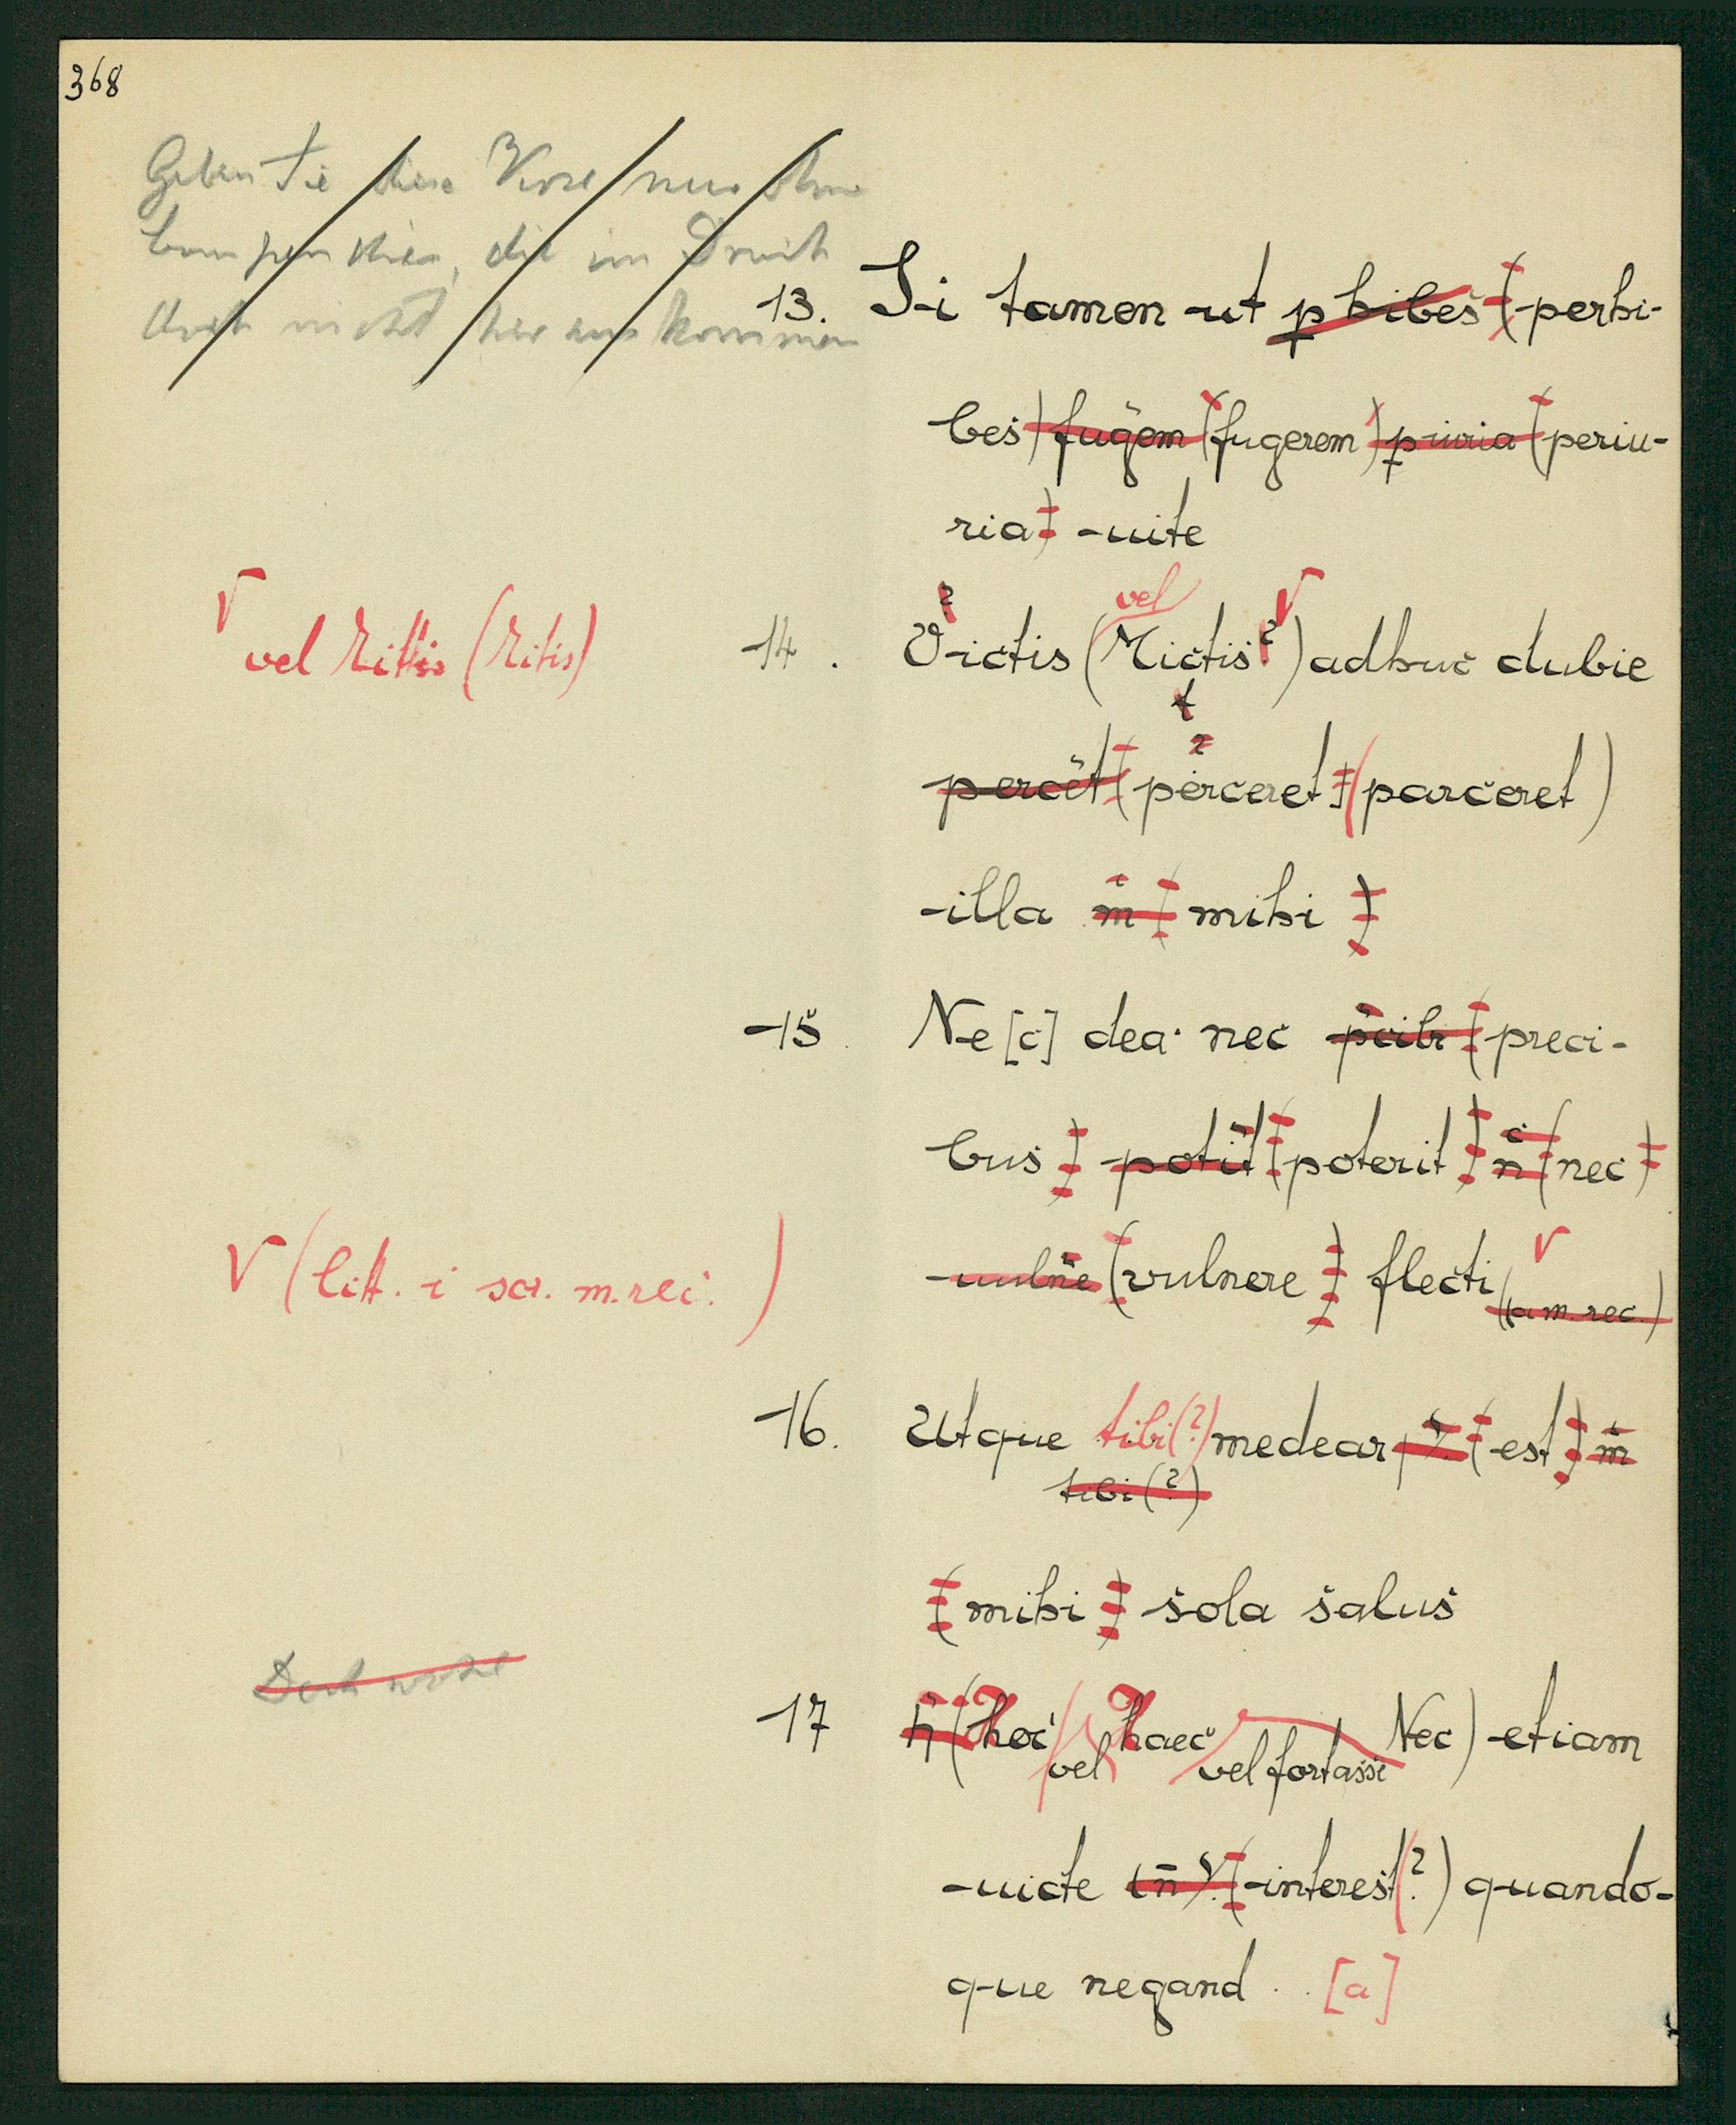 368
Geben Sie diese Verse nur ohne
die im Druck
doch nicht herauskommen
13. Si tamen ut phibes (perhi-
bes) fugem (fugerem) piuria (periu-
ria) uite
vel Rittis (Ritis)
14. Victis (vel Mictis?) adhuc dubie
t
percet (perceret) (parceret)
illa m (mihi)
15 Ne[c] dea nec pcib (preci-
bus) potit (poterit) n (nec)
(litt. i scr. m. rec.)
uulne (vulnere) flecti (a m. rec.)
16. Utque tibi(?) medear (est) m
tibi(?)
(mihi) sola salus
Doch wohl
17 h (hoc vel haec vel fortasse Nec) etiam
uicte in (interest(?)) quando-
que negand . . [a]